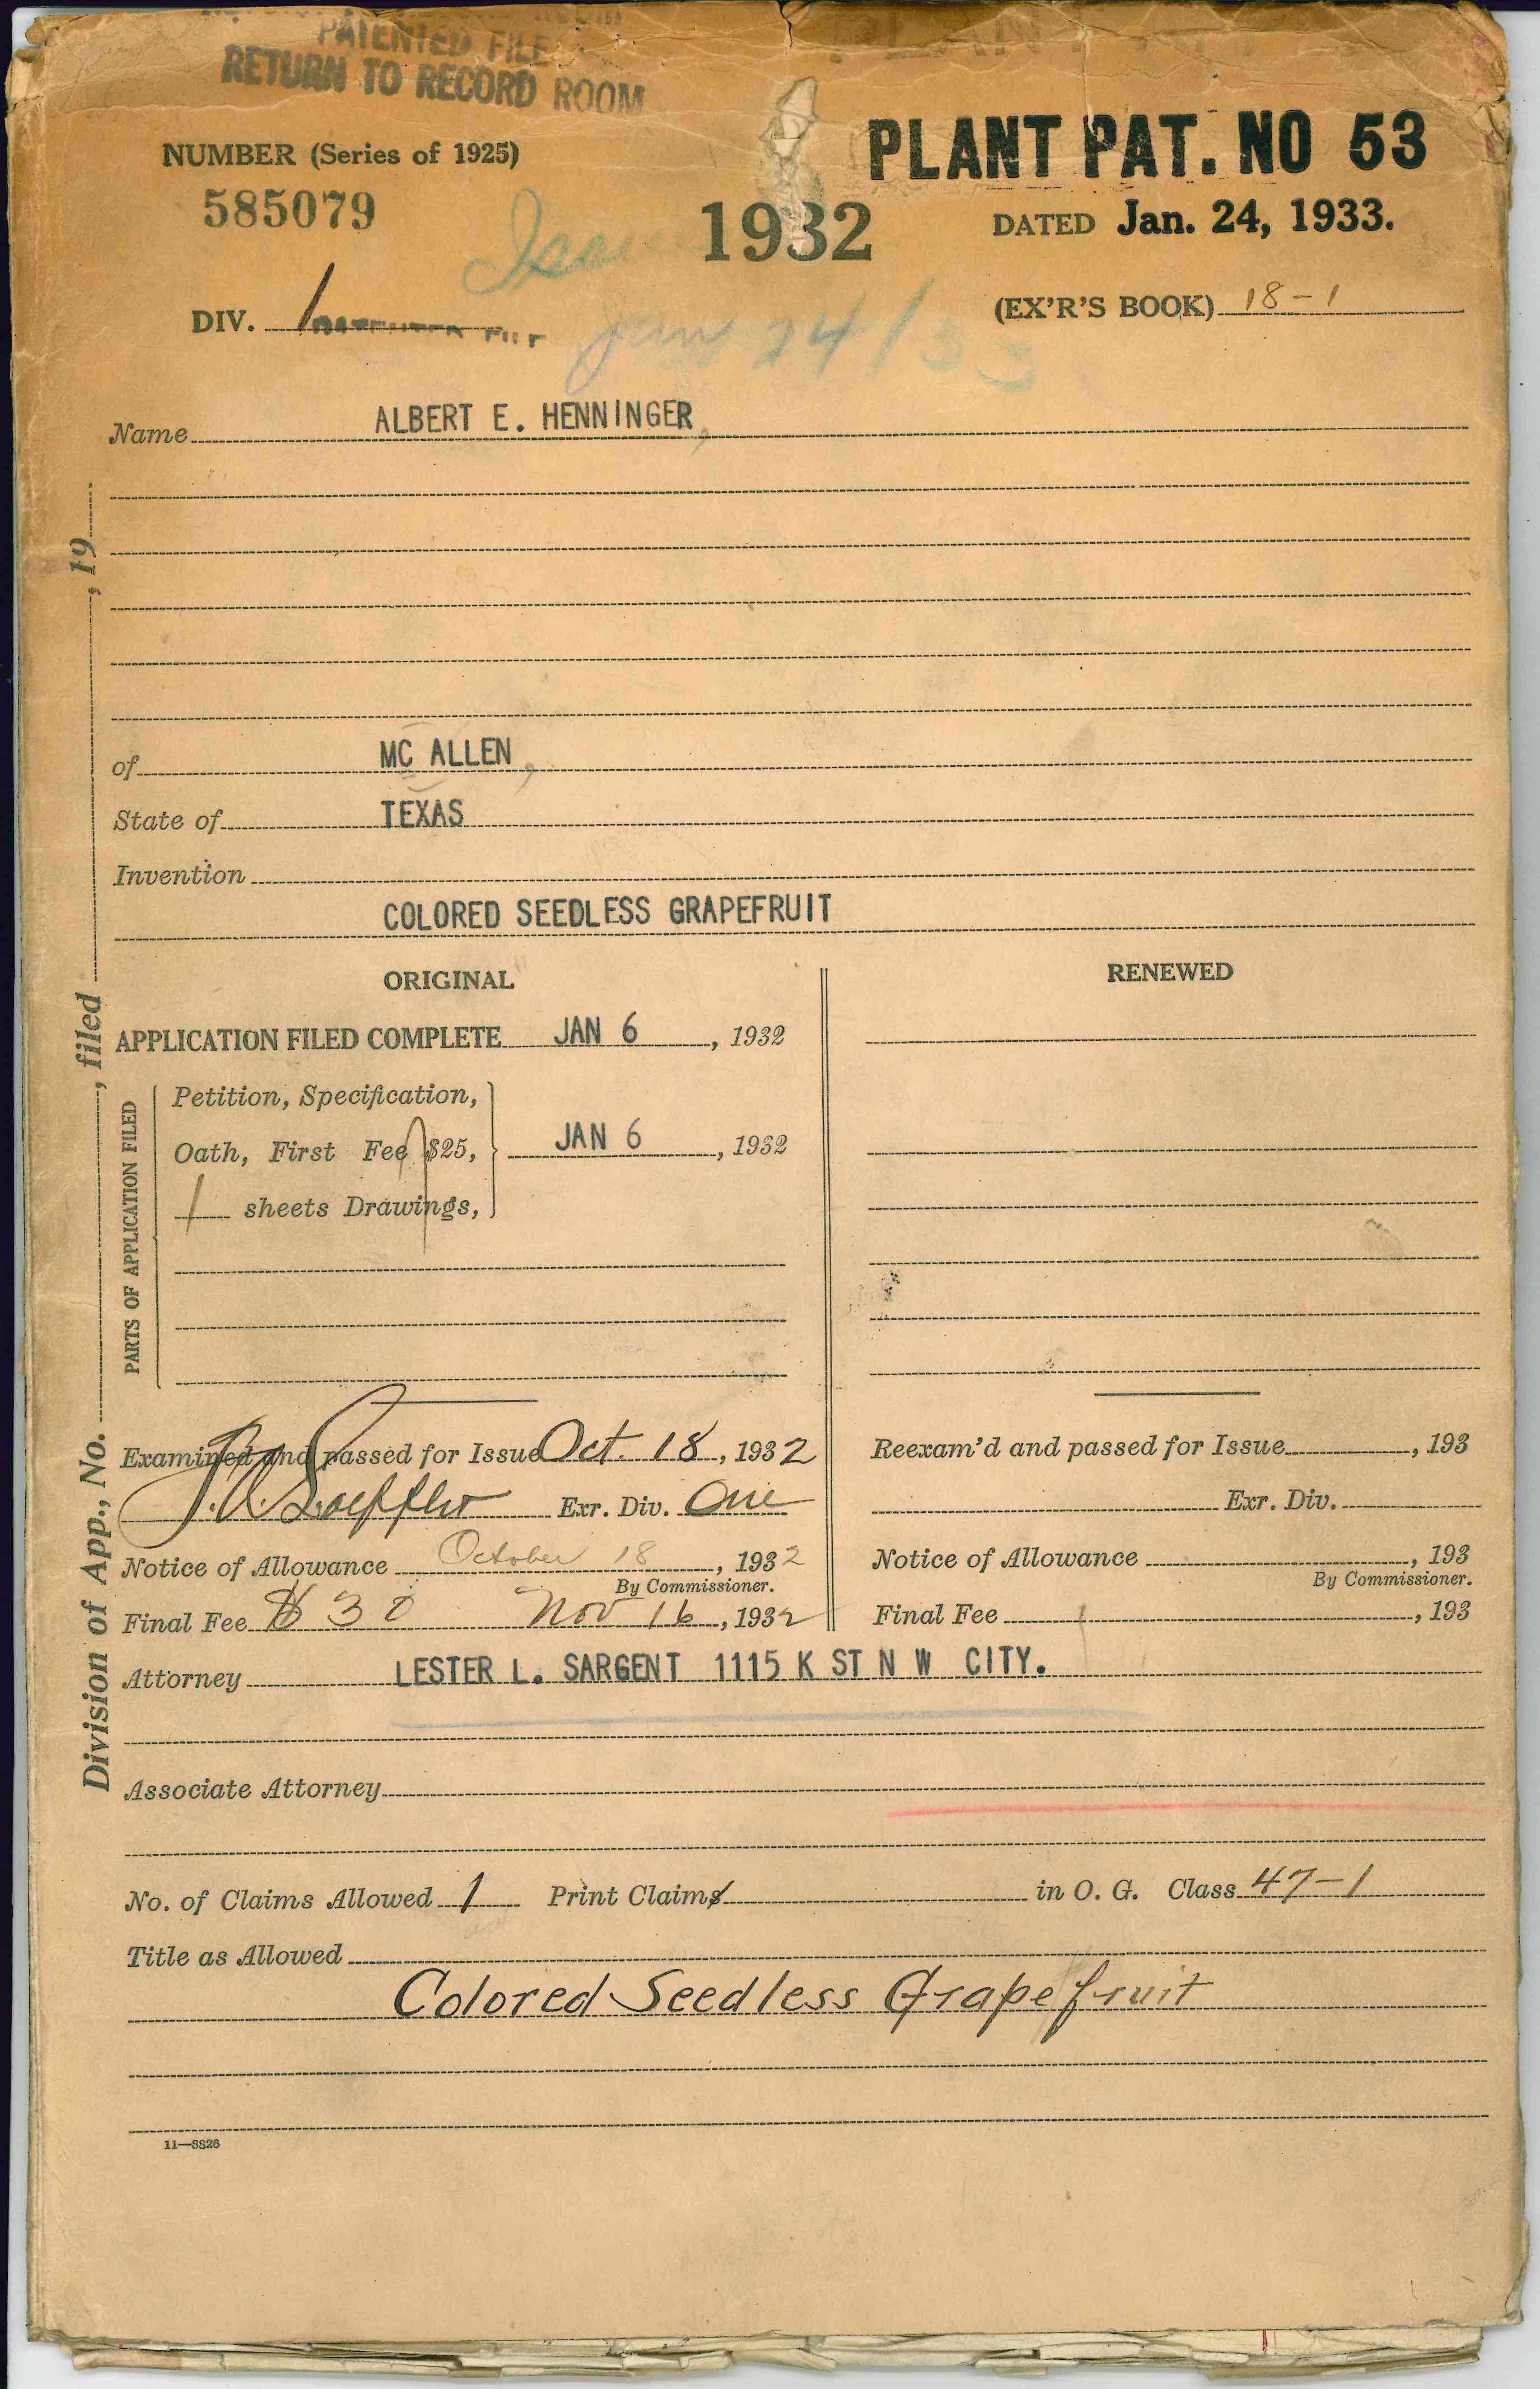 PATENTED FILE
RETURN TO RECORD ROOM
NUMBER (Series of 1925)
585079
PLANT PAT. NO 53
1932
DATED Jan. 24, 1933.
DIV. 1
(EX'R'S BOOK) 18-1
Jan 24/33
Name ALBERT E. HENNINGER,
of MC ALLEN,
State of TEXAS
Invention
COLORED SEEDLESS GRAPEFRUIT
ORIGINAL
APPLICATION FILED COMPLETE JAN 6, 1932
PARTS OF APPLICATION FILED
Petition, Specification,
Oath, First Fee $25,
JAN 6, 1932
1 sheets Drawings,
Examined and passed for Issue Oct. 18, 1932
Exr. Div. One
Notice of Allowance October 18, 1932
By Commissioner.
Final Fee $30 Nov 16, 1932
RENEWED
Reexam'd and passed for Issue, 193
Exr. Div.
Notice of Allowance, 193
By Commissioner.
Final Fee, 193
Attorney LESTER L. SARGENT 1115 K ST N W CITY.
Associate Attorney
No. of Claims Allowed 1 Print Claims in O. G. Class 47-1
Title as Allowed
Colored Seedless Grapefruit
11—8826
Division of App., No. , filed , 19